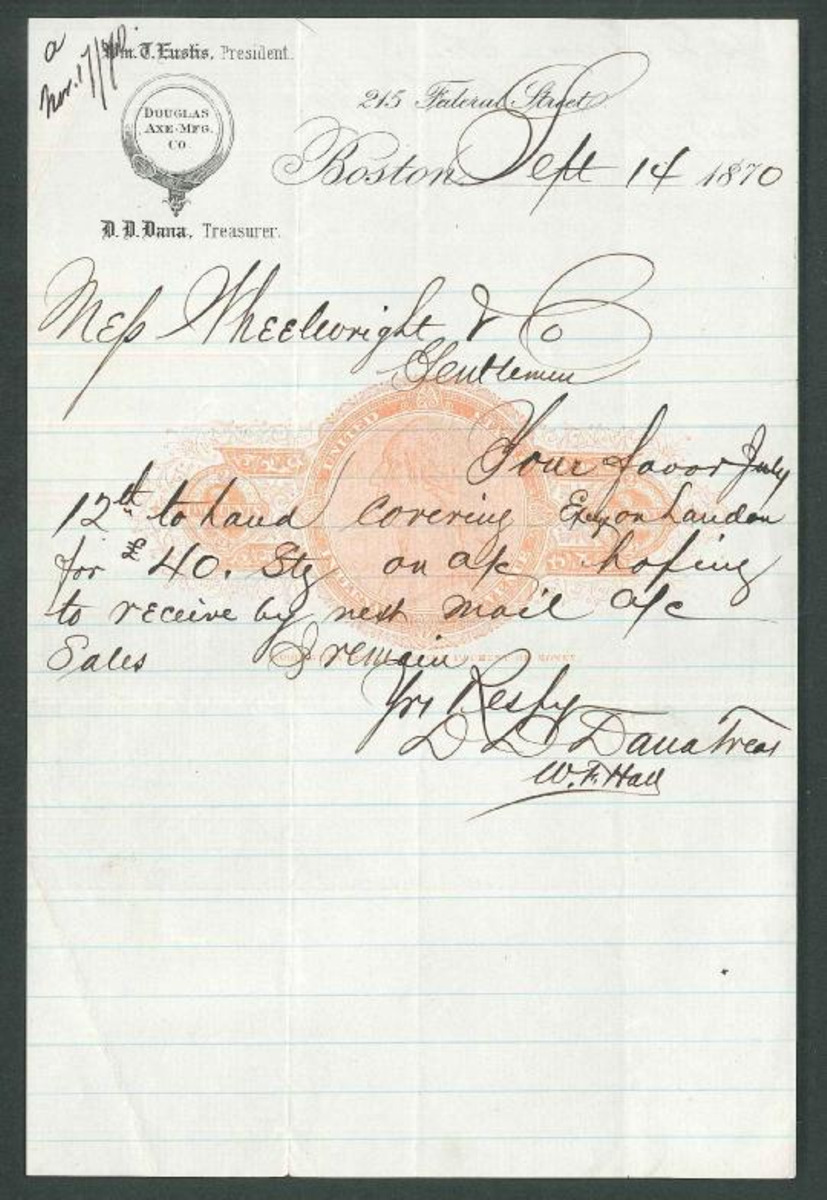 a
Nov. 17/70.
Wm. T. Eustis, President.
DOUGLAS
AXE-MFG.
CO
D. D. Dana, Treasurer.
215 Federal Street
Boston Sept 14 1870
Mess Wheelwright & Co
Gentlemen
Your favor July
12th to hand covering Exg on London
for £ 40. Stg on a/c hoping
to receive by next mail a/c
Sales I remain
UNITED
MONEY
Yrs Resfy
D D Dana Treas
W. F. Hall